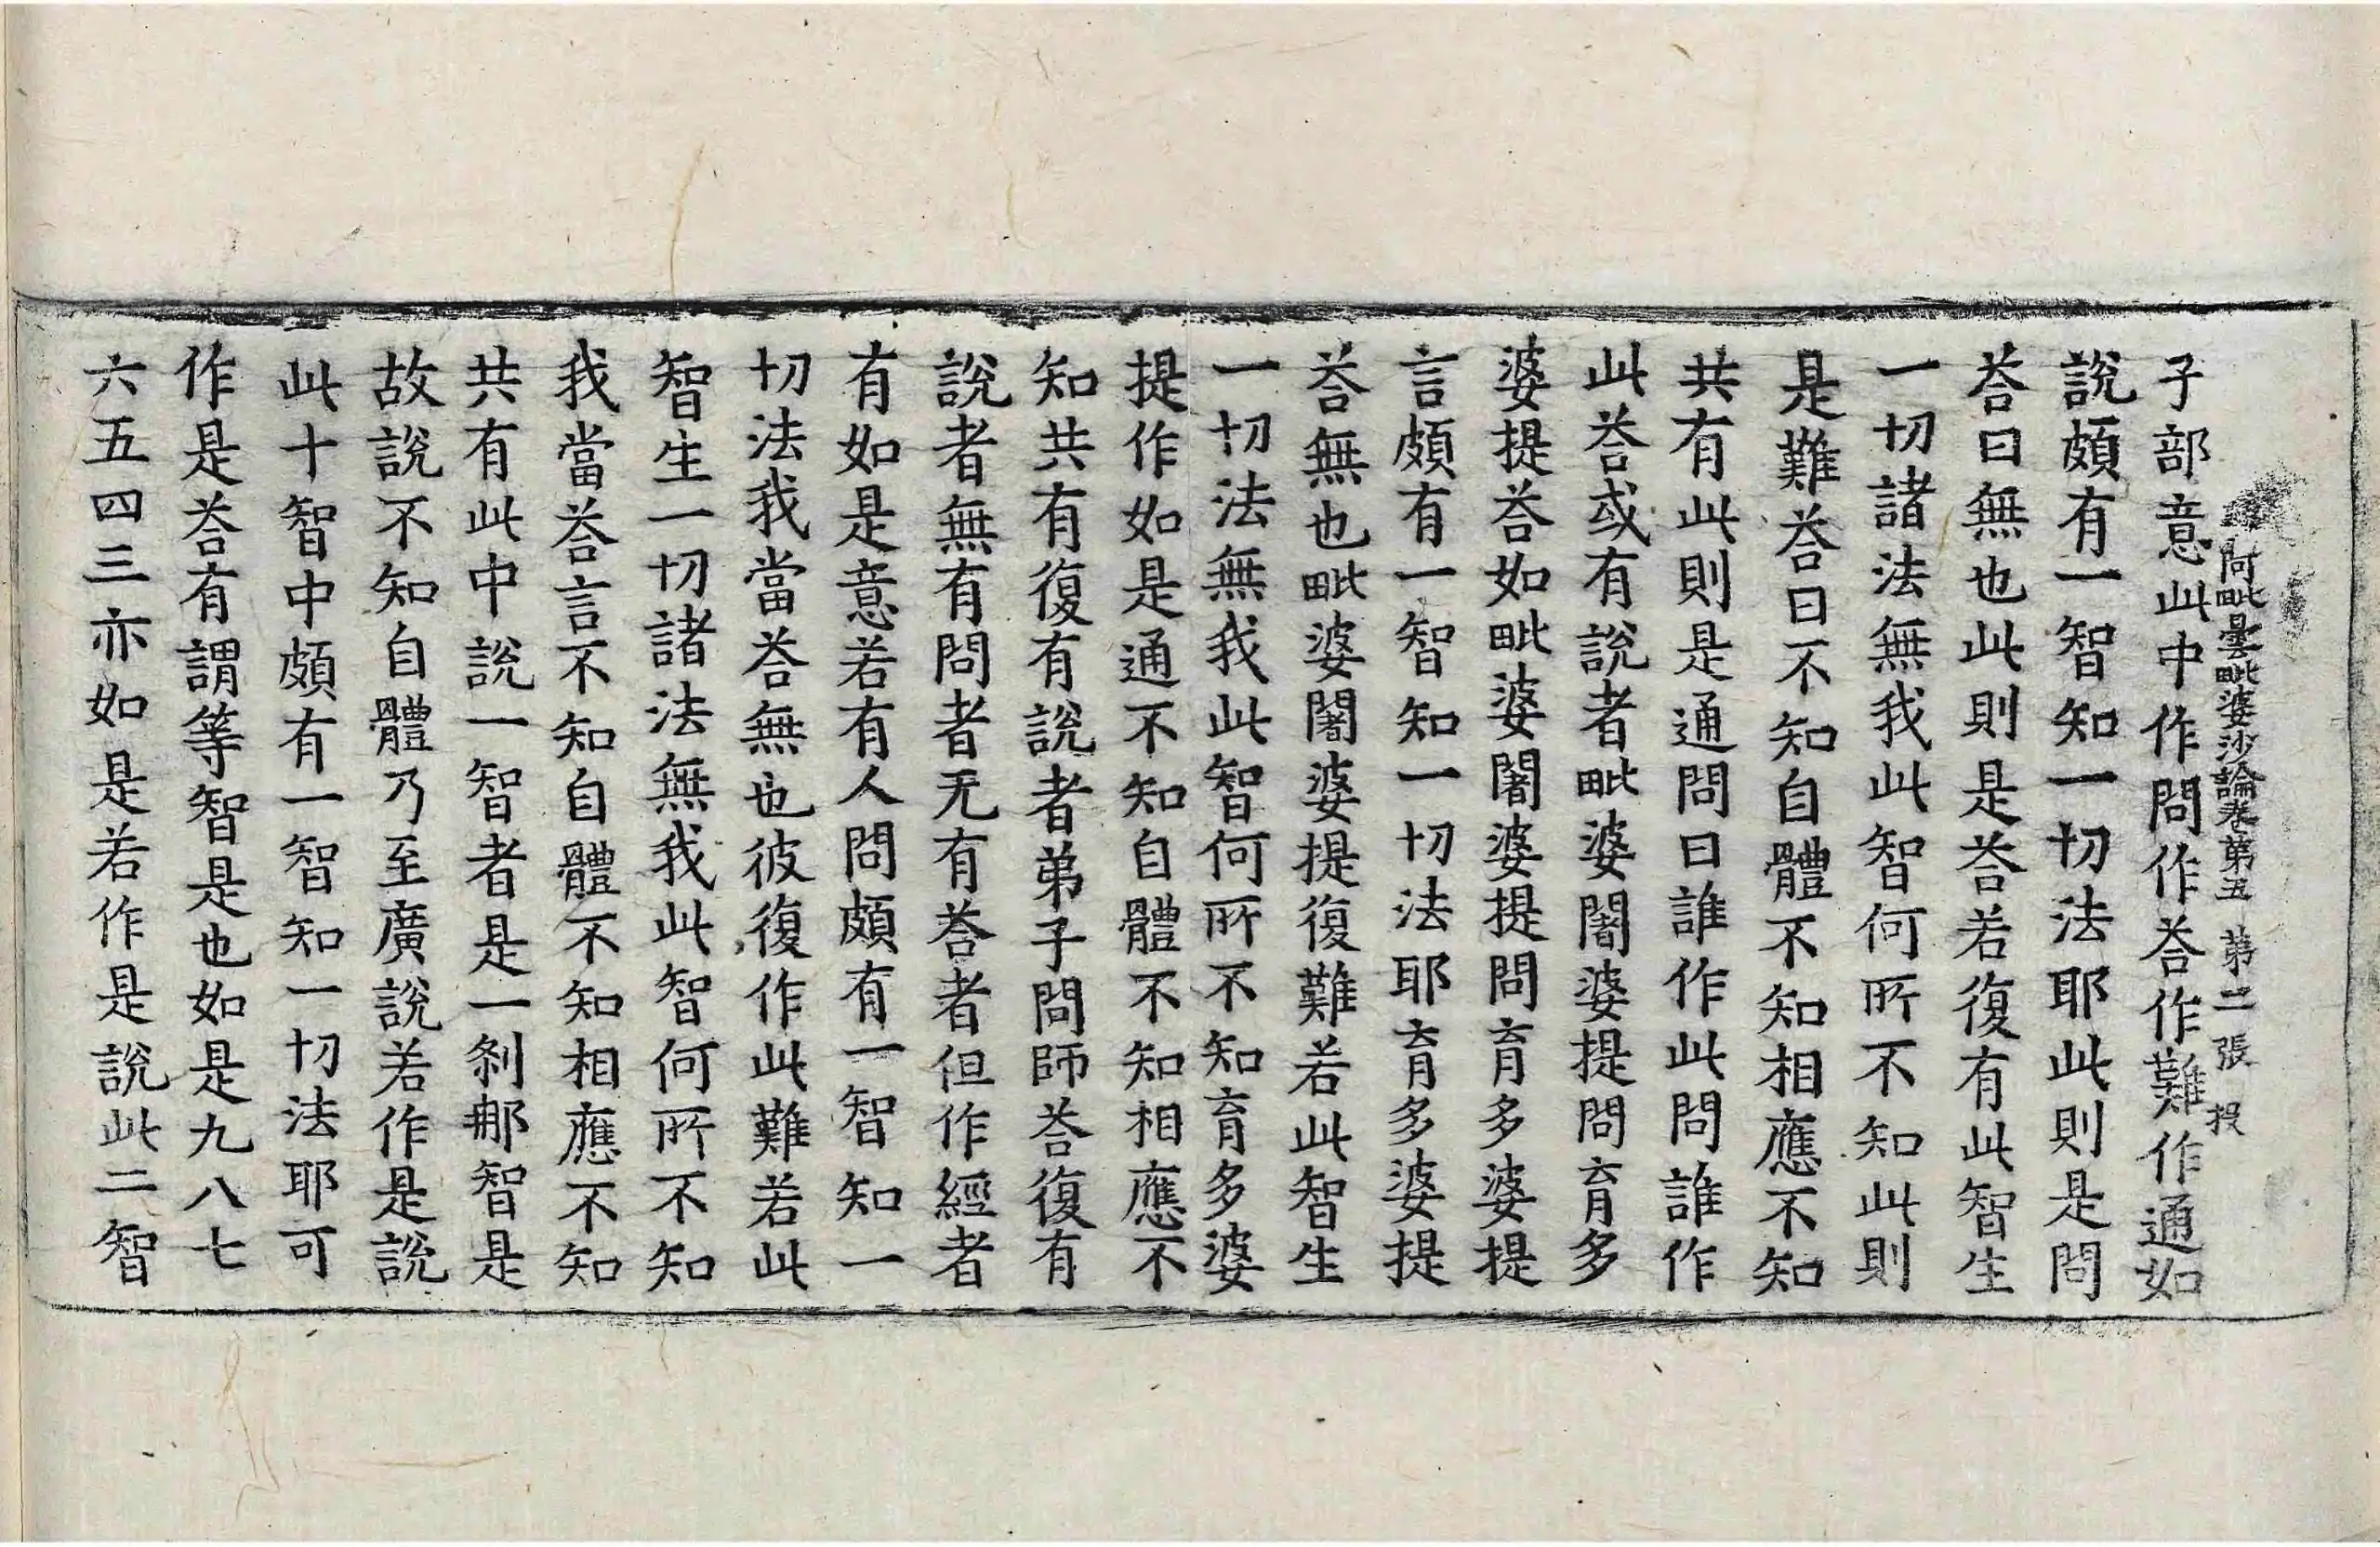 阿毗曇毗婆沙論卷第五　第二張　投
子部意此中作問作荅作難作通如
說頗有一智知一切法耶此則是問
荅曰無也此則是荅若復有此智生
一切諸法無我此智何所不知此則
是難荅曰不知自體不知相應不知
共有此則是通問曰誰作此問誰作
此荅或有說者毗婆闍婆提問育多
婆提荅如毗婆闍婆提問育多婆提
言頗有一智知一切法耶育多婆提
荅無也毗婆闍婆提復難若此智生
一切法無我此智何所不知育多婆
提作如是通不知自體不知相應不
知共有復有說者弟子問師荅復有
說者無有問者无有荅者但作經者
有如是意若有人問頗有一智知一
切法我當荅無也彼復作此難若此
智生一切諸法無我此智何所不知
我當荅言不知自體不知相應不知
共有此中說一智者是一剎那智是
故說不知自體乃至廣說若作是說
此十智中頗有一智知一切法耶可
作是荅有謂等智是也如是九八七
六五四三亦如是若作是說此二智